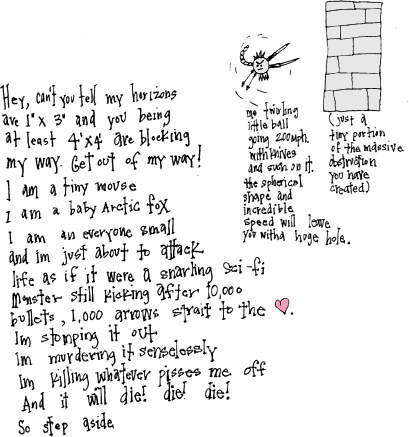 Hey, can't you tell my horizons
are 1" x 3" and you being
at least 4'x4' are blocking
my way. Get out of my way!
I am a tiny mouse
I am a baby Arctic fox
I am an everyone small
and im just about to attack
life as if it were a snarling sci-fi
monster still kicking after 10,000
bullets, 1,000 arrows strait to the ♥.
Im stomping it out
Im murdering it senselessly
Im killing whatever pisses me off
And it will die! die! die!
So step aside
me twirling
little ball
going 200mph.
with knives
and such on it.
the spherical
shape and
incredible
speed will leave
you with a huge hole.
(just a
tiny portion
of the massive
obstruction
you have
created)